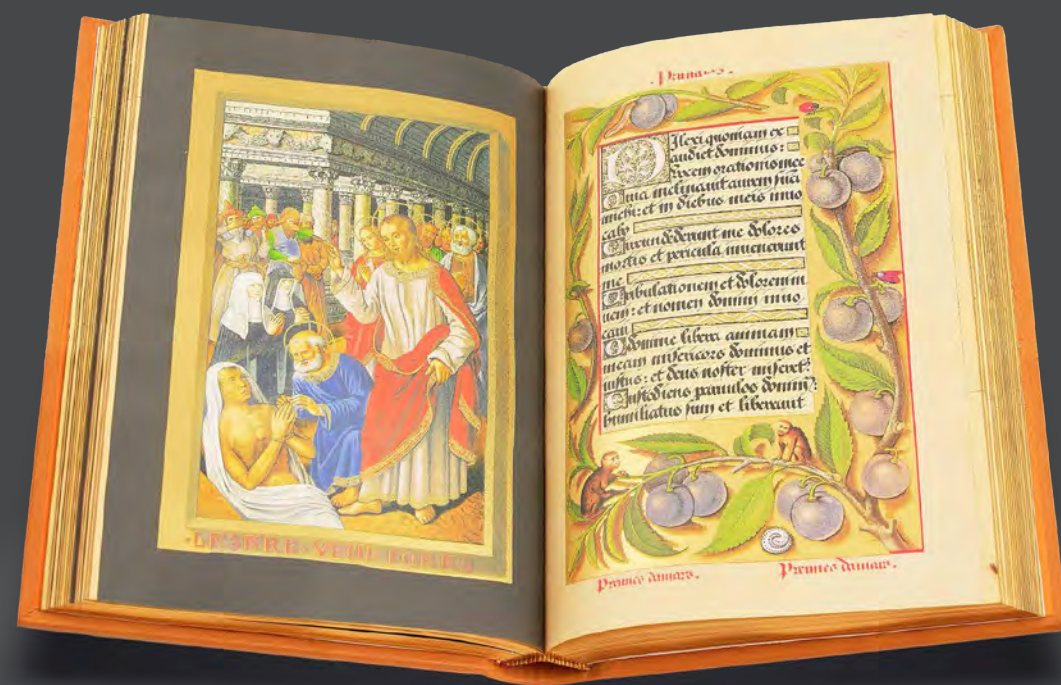 LASARE · VENI FORAS
. Prunays .
Dilexi quoniam ex
audiet dominus:
vocem orationis mee
Quia inclinavit aurem suã
michi: et in diebus meis invo
cabo
Circundederunt me dolores
mortis et pericula invenerunt
me
Tribulationem et dolorem in
veni: et nomen domini invo
cavi
O domine libera animam
meam misericors dominus et
iustus: et deus noster miseret?
Custodiens parvulos domin?
humiliatus sum et liberavit
Prunes damars.
Prunes damars.